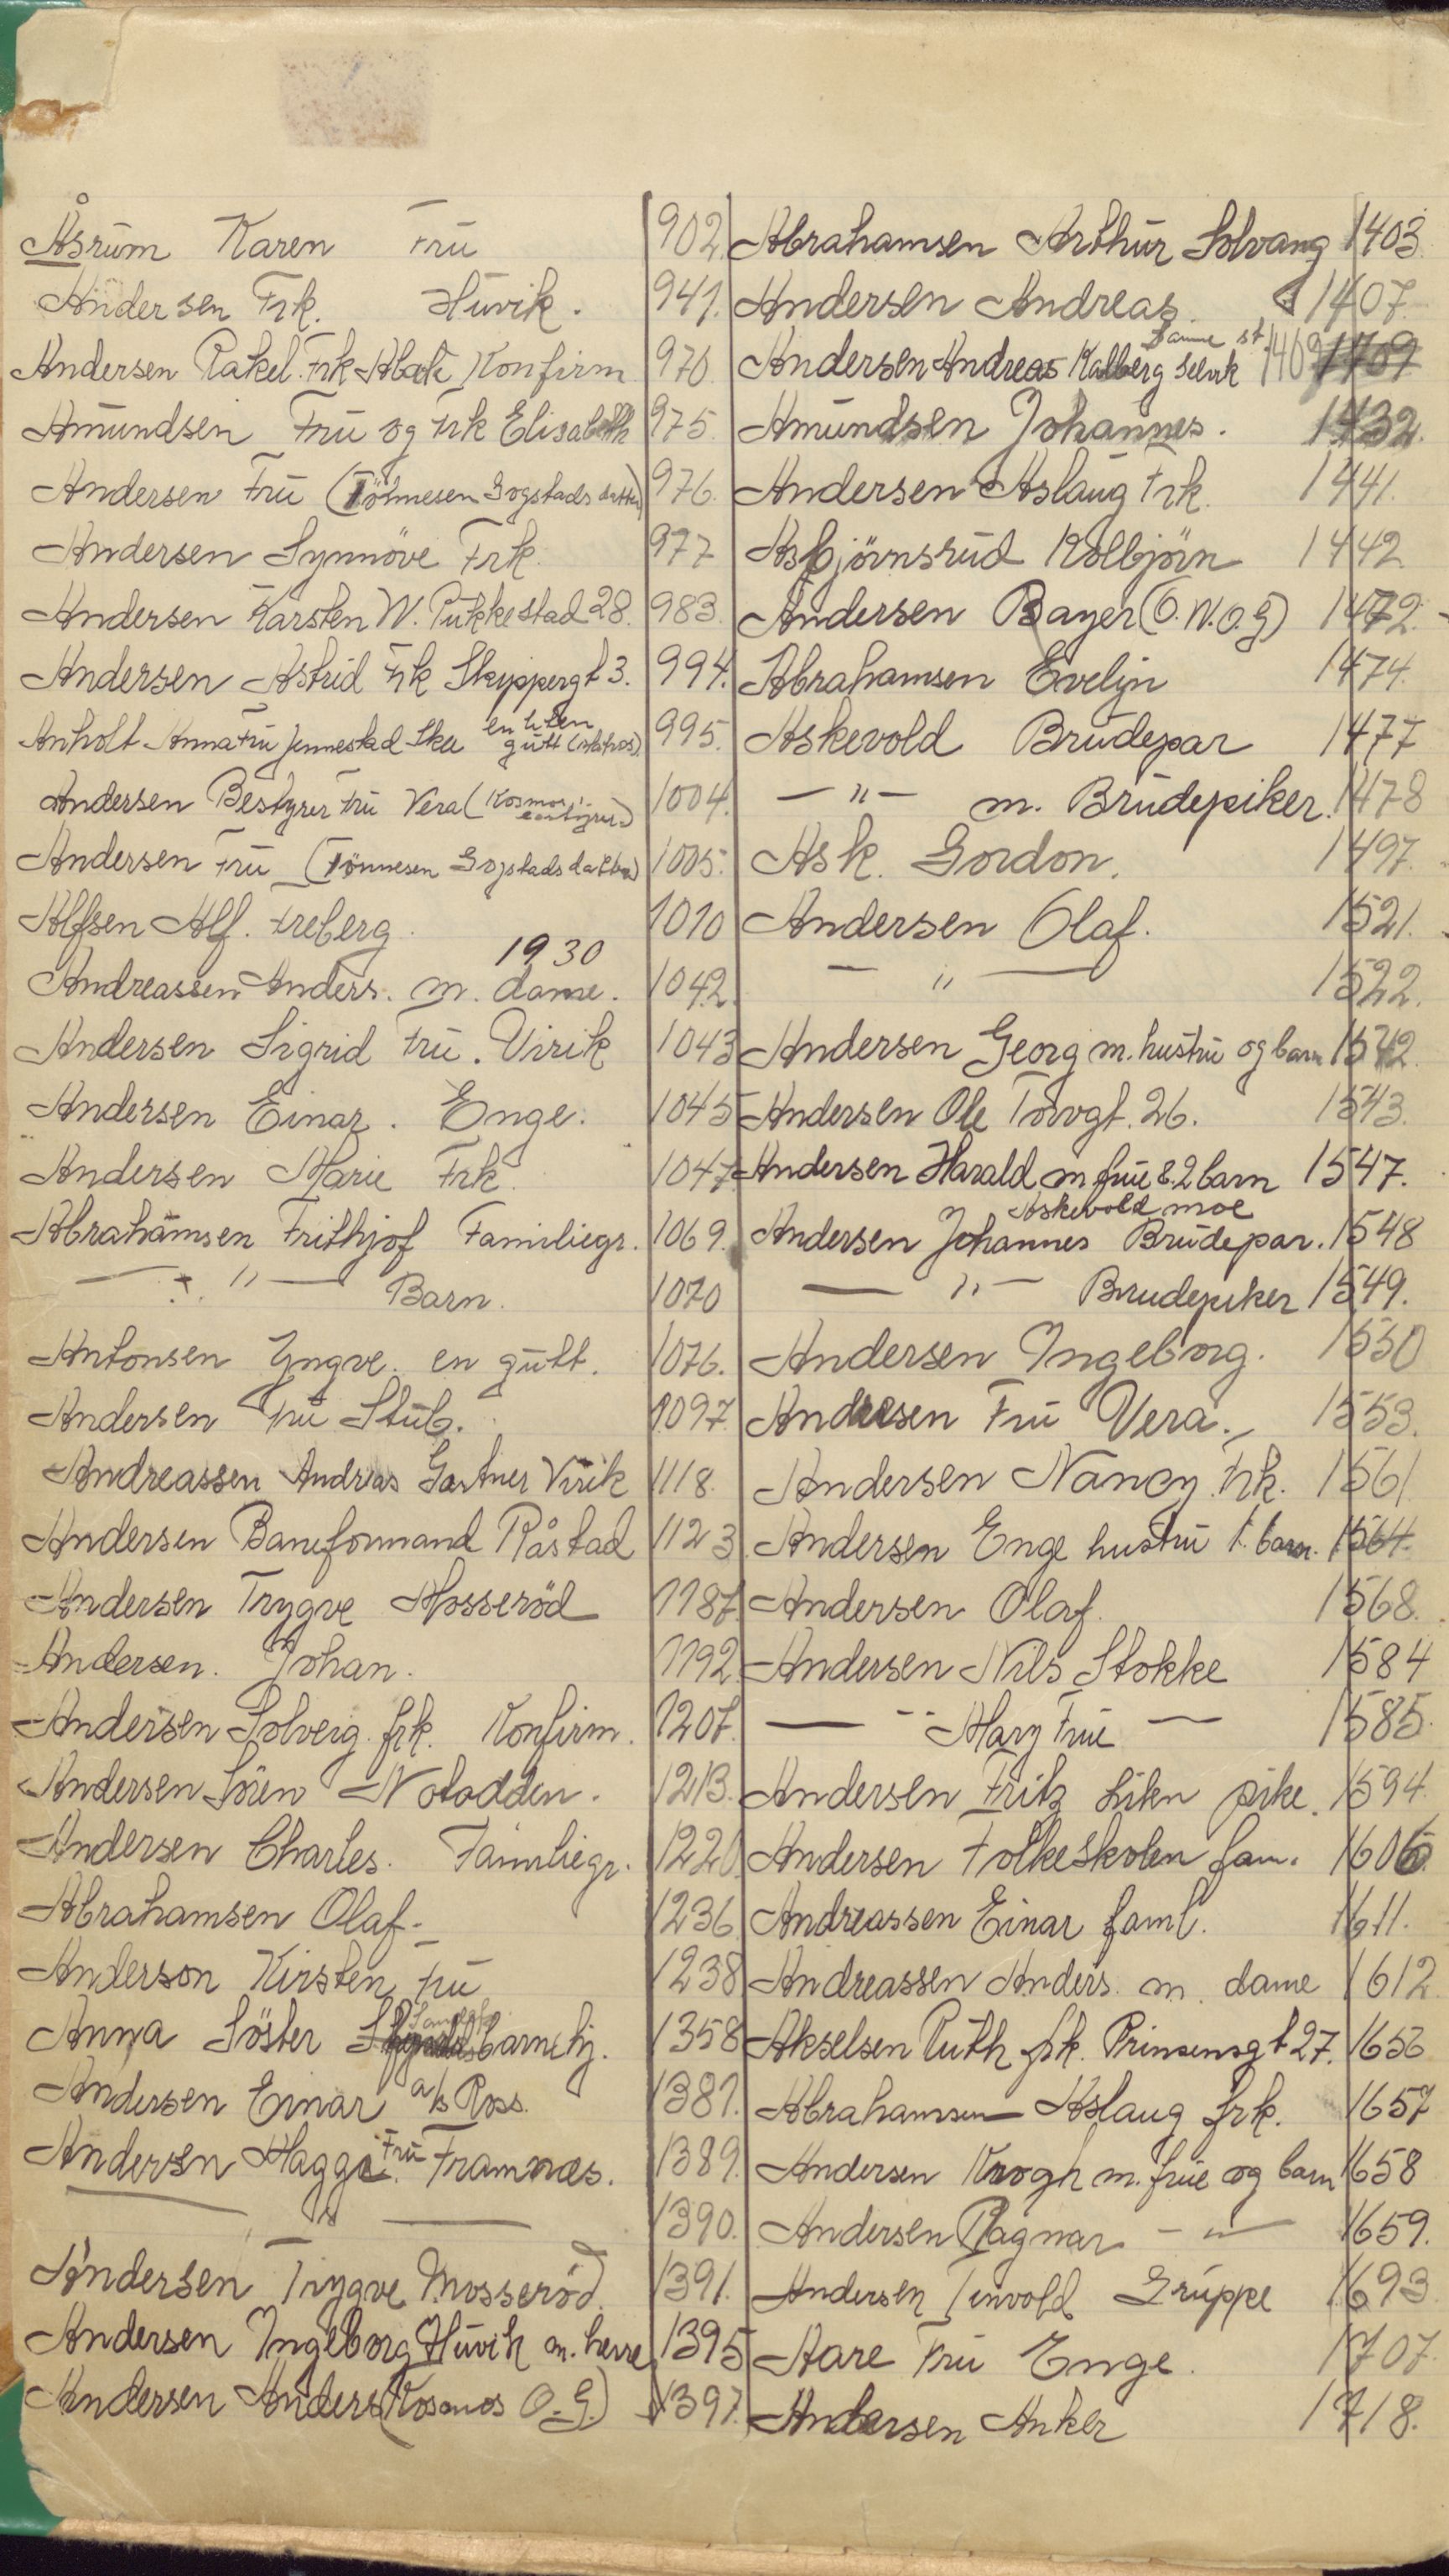 Åsrum Karen Fru 902.
Andersen Frk. Huvik. 941.
Andersen Rakel Frk Konfirm 970.
Amundsen Fru og Frk Elisabeth 975.
Andersen Fru (Tönnesen Gogstads datter) 976.
Andersen Synnöve Frk. 977
Andersen Karsten W. Pukkestad 28. 983.
Andersen Astrid Frk Skippergt 3. 994.
Anholt Anna Fru Jennestad Skee en liten gutt (matros) 995.
Andersen Bestyrer Fru Vera (Kosmos 1004.
Andersen Fru (Tönnesen Gogstads datter) 1005.
Alfsen Alf. Freberg. 1010
1930
Andreassen Anders. m. dame. 1042.
Andersen Sigrid Fru. Virik 1043
Andersen Einar. Enge. 1045
Andersen Marie Frk. 1047.
Abrahamsen Frithjof Familiegr. 1069.
— " — Barn. 1070
Antonsen Yngve. en gutt. 1076.
Andersen Fru Stub. 1097.
Andreassen Andreas Gartner Virik 1118.
Andersen Baneformand Råstad 1123.
Andersen Trygve Mosseröd 1187.
Andersen. Johan. 1192
Andersen Solveig frk. Konfirm. 1207.
Andersen Sören Notodden. 1213.
Andersen Charles. Familiegr. 1220.
Abrahamsen Olaf. 1236.
Anderson Kirsten Fru 1238
Anna Söster barnehj. 1358
Andersen Einar a/s Ross. 1381.
Andersen Hagga Fru Framnæs. 1389.
— " — 1390.
Andersen Trygve Mosseröd. 1391.
Andersen Ingeborg Huvik m. herre 1395
Andersen Anders (Kosmos O.G.) 1397.
Abrahamsen Arthur Solvang 1403.
Andersen Andreas. 1407.
Andersen Andreas Kalberg Selvik Samme st 1409 1709
Amundsen Johannes. 1432.
Andersen Aslaug Frk. 1441.
Asbjörnsrud Kolbjörn 1442
Andersen Bayer (O.W.O.G) 1472.
Abrahamsen Evelyn 1474.
Askevold Brudepar 1477
— " — m. Brudepiker. 1478
Ask. Gordon. 1497.
Andersen Olaf. 1521.
— " — 1522.
Andersen Georg m. hustru og barn 1542.
Andersen Ole Torvgt. 26. 1543.
Andersen Harald m frue & 2 barn 1547.
Askevold moe
Andersen Johannes Brudepar. 1548
— " — Brudepiker 1549.
Andersen Ingeborg. 1550
Andersen Fru Vera. 1553.
Andersen Nancy Frk. 1561
Andersen Enge hustru 1. barn. 1564.
Andersen Olaf. 1568.
Andersen Nils Stokke 1584
— " Mary Frue — 1585.
Andersen Fritz liten pike. 1594.
Andersen Folkeskolen fam. 1606.
Andreassen Einar faml. 1611.
Andreassen Anders. m. dame 1612
Akselsen Ruth frk. Prinsensgt 27. 1656
Abrahamsen Aslaug frk. 1657
Andersen Krogh m. frue og barn 1658
Andersen Ragnar — " — 1659.
Andersen Tenvold Gruppe 1693
Aare Fru Enge. 1707.
Andersen Anker 1718.